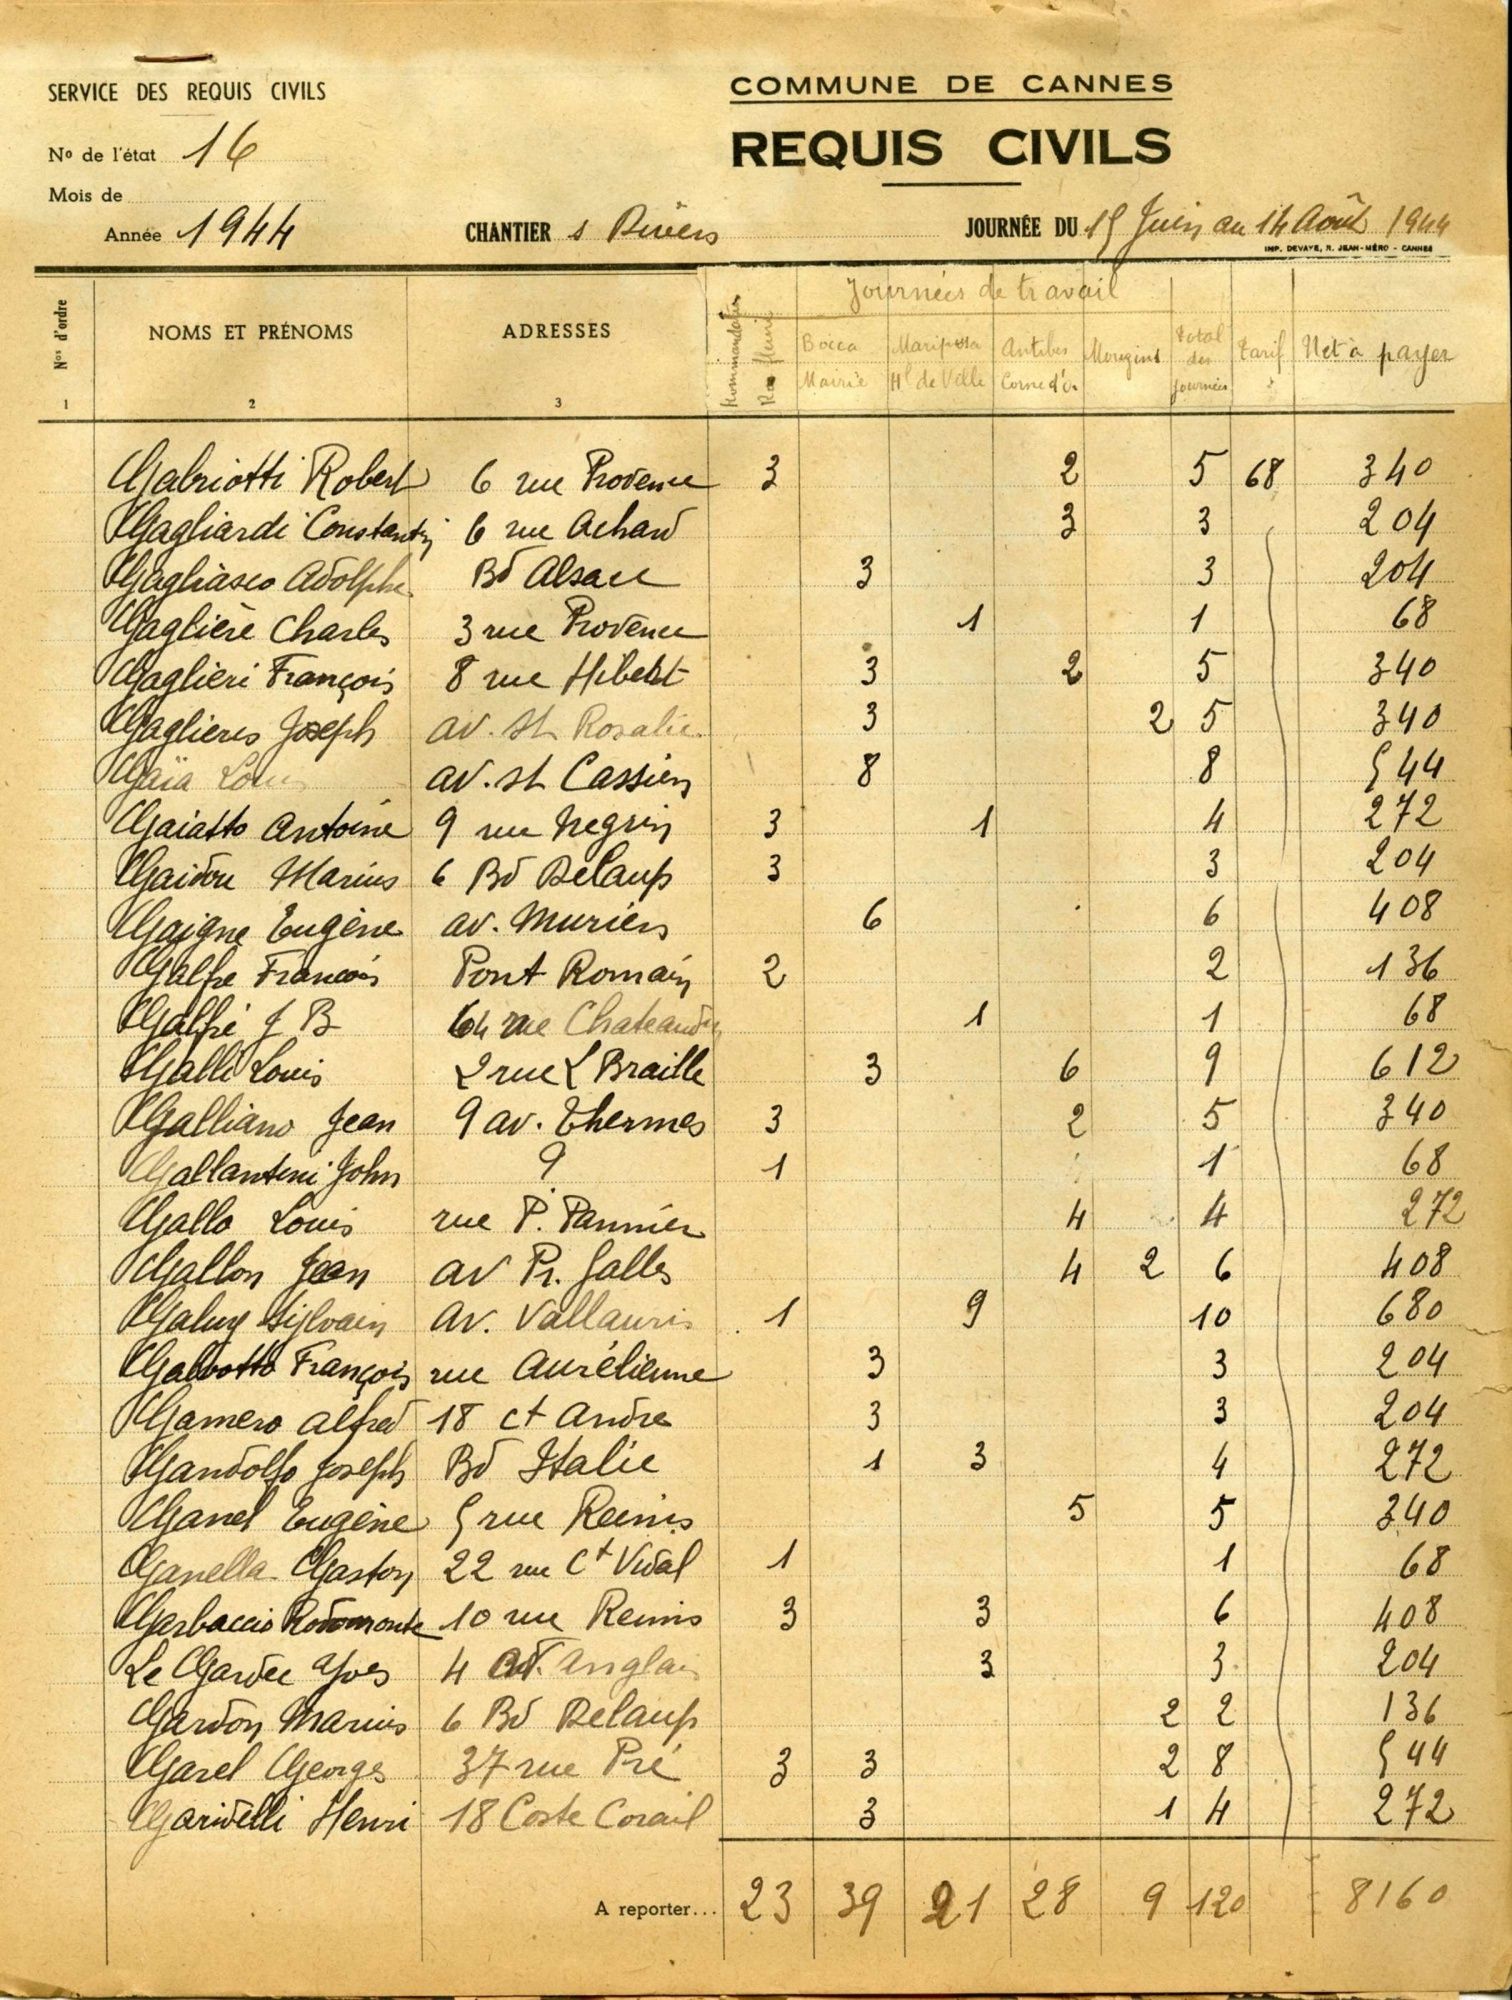 SERVICE DES REQUIS CIVILS
COMMUNE DE CANNES
REQUIS CIVILS
No de l'état 16
Mois de
Année 1944
CHANTIER s Divers
JOURNÉE DU 15 Juin au 14 Août 1944
IMP. DEVAYE, R. JEAN-MÉRO - CANNES
Nos d'ordre NOMS ET PRÉNOMS ADRESSES Kommandatur Journées de travail Total des journées Tarif Net à payer
Bocca Mairie Mariposa Hl de Ville Antibes Corne d'Or Mougins
1 2 3
Gabriotti Robert 6 rue Provence 3 2 5 68 340
Gagliardi Constantin 6 rue Achard 3 3 204
Gagliasco Adolphe Bd Alsace 3 3 204
Gaglière Charles 3 rue Provence 1 1 68
Gaglieri François 8 rue Hibert 3 2 5 340
Gaglieres Joseph av. St Rosalie 3 2 5 340
Gaïa Louis av. st Cassien 8 8 544
Gaiatto Antoine 9 rue Negrin 3 1 4 272
Gaidon Marius 6 Bd Delaup 3 3 204
Gaigne Eugène av. Muriers 6 6 408
Galfre François Pont Romain 2 2 136
Galfré J B 64 rue Chateaudun 1 1 68
Galli Louis 2 rue L Braille 3 6 9 612
Galliano Jean 9 av. Thermes 3 2 5 340
Gallantini John ? 1 1 68
Gallo Louis rue P. Pannier 4 4 272
Gallon Jean av Pr. Galles 4 2 6 408
Galuy Sylvain Av. Vallauris 1 9 10 680
Galvotto François rue Aurélienne 3 3 204
Gamero Alfred 18 ct André 3 3 204
Gandolfo Joseph Bd Italie 1 3 4 272
Ganel Eugène 5 rue Reims 5 5 340
Ganella Gaston 22 rue Ct Vidal 1 1 68
Garbaccio Rodomonte 10 rue Reims 3 3 6 408
Le Gardee Yves 4 Anglais 3 3 204
Gardon Marius 6 Bd Delaup 2 2 136
Garel Georges 37 rue Pré 3 3 2 8 544
Garidelli Henri 18 Coste Corail 3 1 4 272
A reporter... 23 39 21 28 9 120 8160